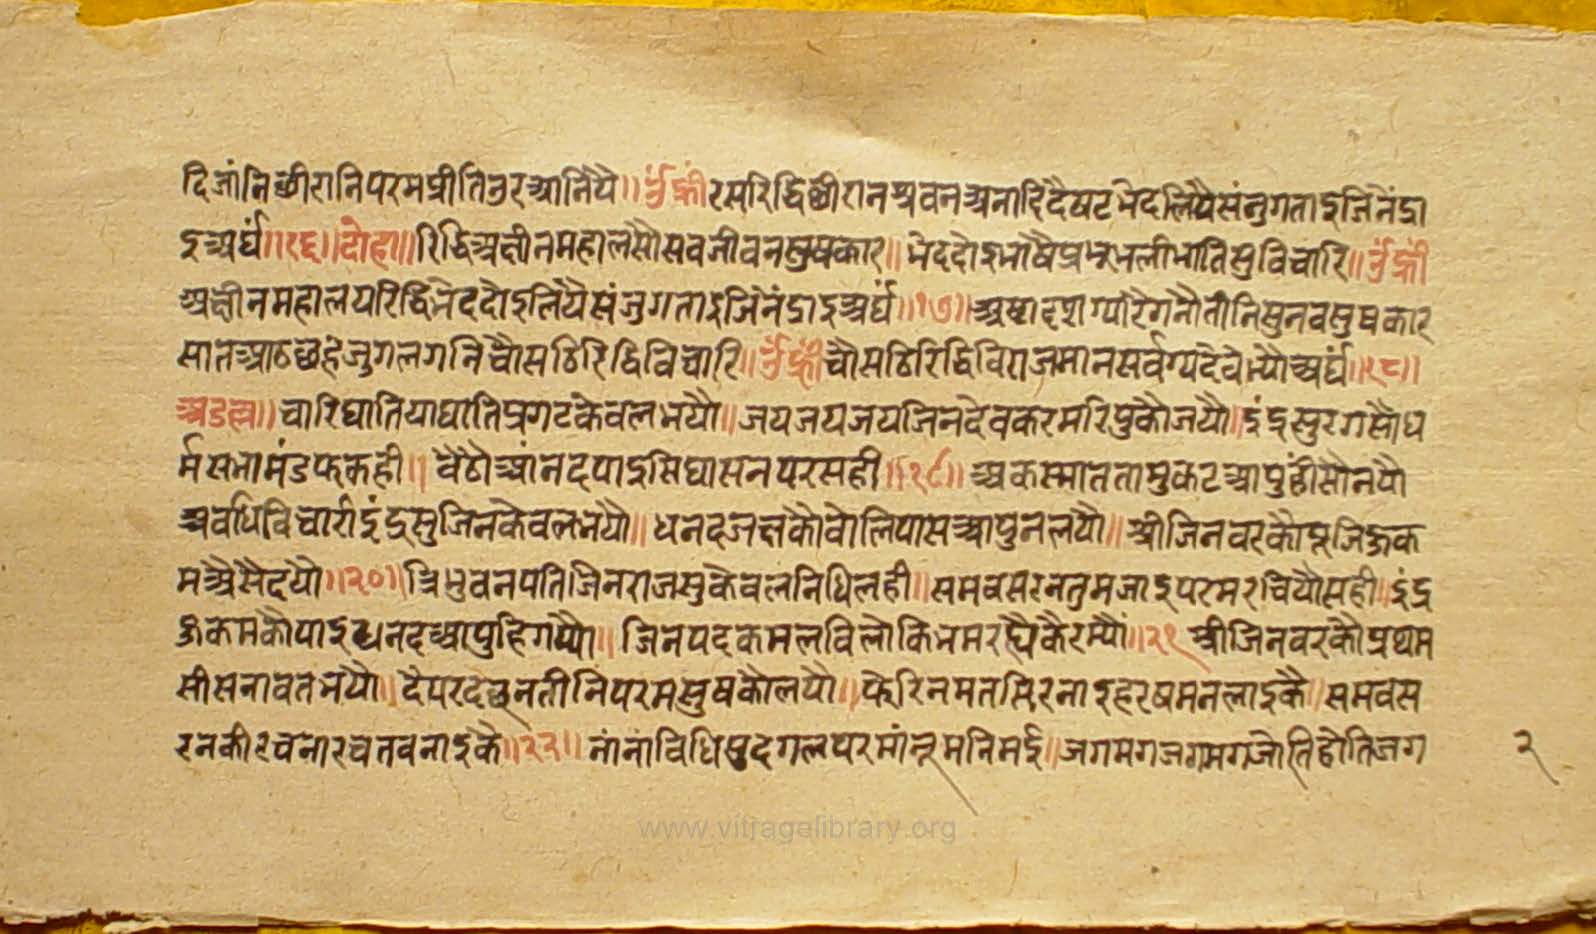 दिजांनिछीरानिपरमप्रीतिउरआनियै॥ ॐह्रींरसरिद्धिछीरानश्रवनअनादिदैषटभेदलियैसंजुगताइजिनेंद्रा
इअर्घं॥१६॥दोहा॥रिद्धिअक्षीनमहालसौसवजीवनसुषकार॥ भेददोइभाषैप्रभूभलीभांतिसुविचारि॥ॐह्रीं
अक्षीनमहालयरिद्धिभेददोइलियैसंजुगताइजिनेंद्राइअर्घं॥१७॥अष्टादशग्यारैगनौतीनिसुनवसुषकार
सातआठछहेजुगलगनिचौसठिरिद्धिविचारि॥ॐह्रींचौसठिरिद्धिविराजमानसर्वग्यदेवेभ्योअर्घं॥१८॥
अडल्ल॥चारिघातियाघातिप्रगटकेवलभयौ॥जयजयजयजिनदेवकरमरिपुकौजयौ॥इंद्रसुरगसौध
र्मसभामंडफकही॥ वैठौआंनदपाइसिघासनपरसही॥१९॥ अकस्माततामुकटआपुहीसौनयौ
अवधिविचारीइंद्रसुजिनकेवलभयौ॥धनदजक्षकौवोलिपासआपुनलयौ॥श्रीजिनवरकौपूजिहुक
मअैसैदयौ॥२०॥त्रिभुवनपतिजिनराजसुकेवलनिधिलही॥समवसरनतुमजाइपरमरचियौसही॥इंद्र
हुकमकौपाइधनदआपुहिगयौ॥ जिनपदकमलविलोकिभमरह्वैकैरम्यौ॥२१ श्रीजिनवरकौप्रथम
सीसनावतभयौ॥दैपरदछनतीनिपरमसुषकौलयौ॥फेरिनमतसिरनाइहरषमनलाइकै॥समवस
रनकीरचनारचतवनाइकै॥२२॥ नांनाविधिपुदगलपरमांनूमनिमई॥जगमगजगमगजोतिहोतिजग
२
www.vitragelibrary.org